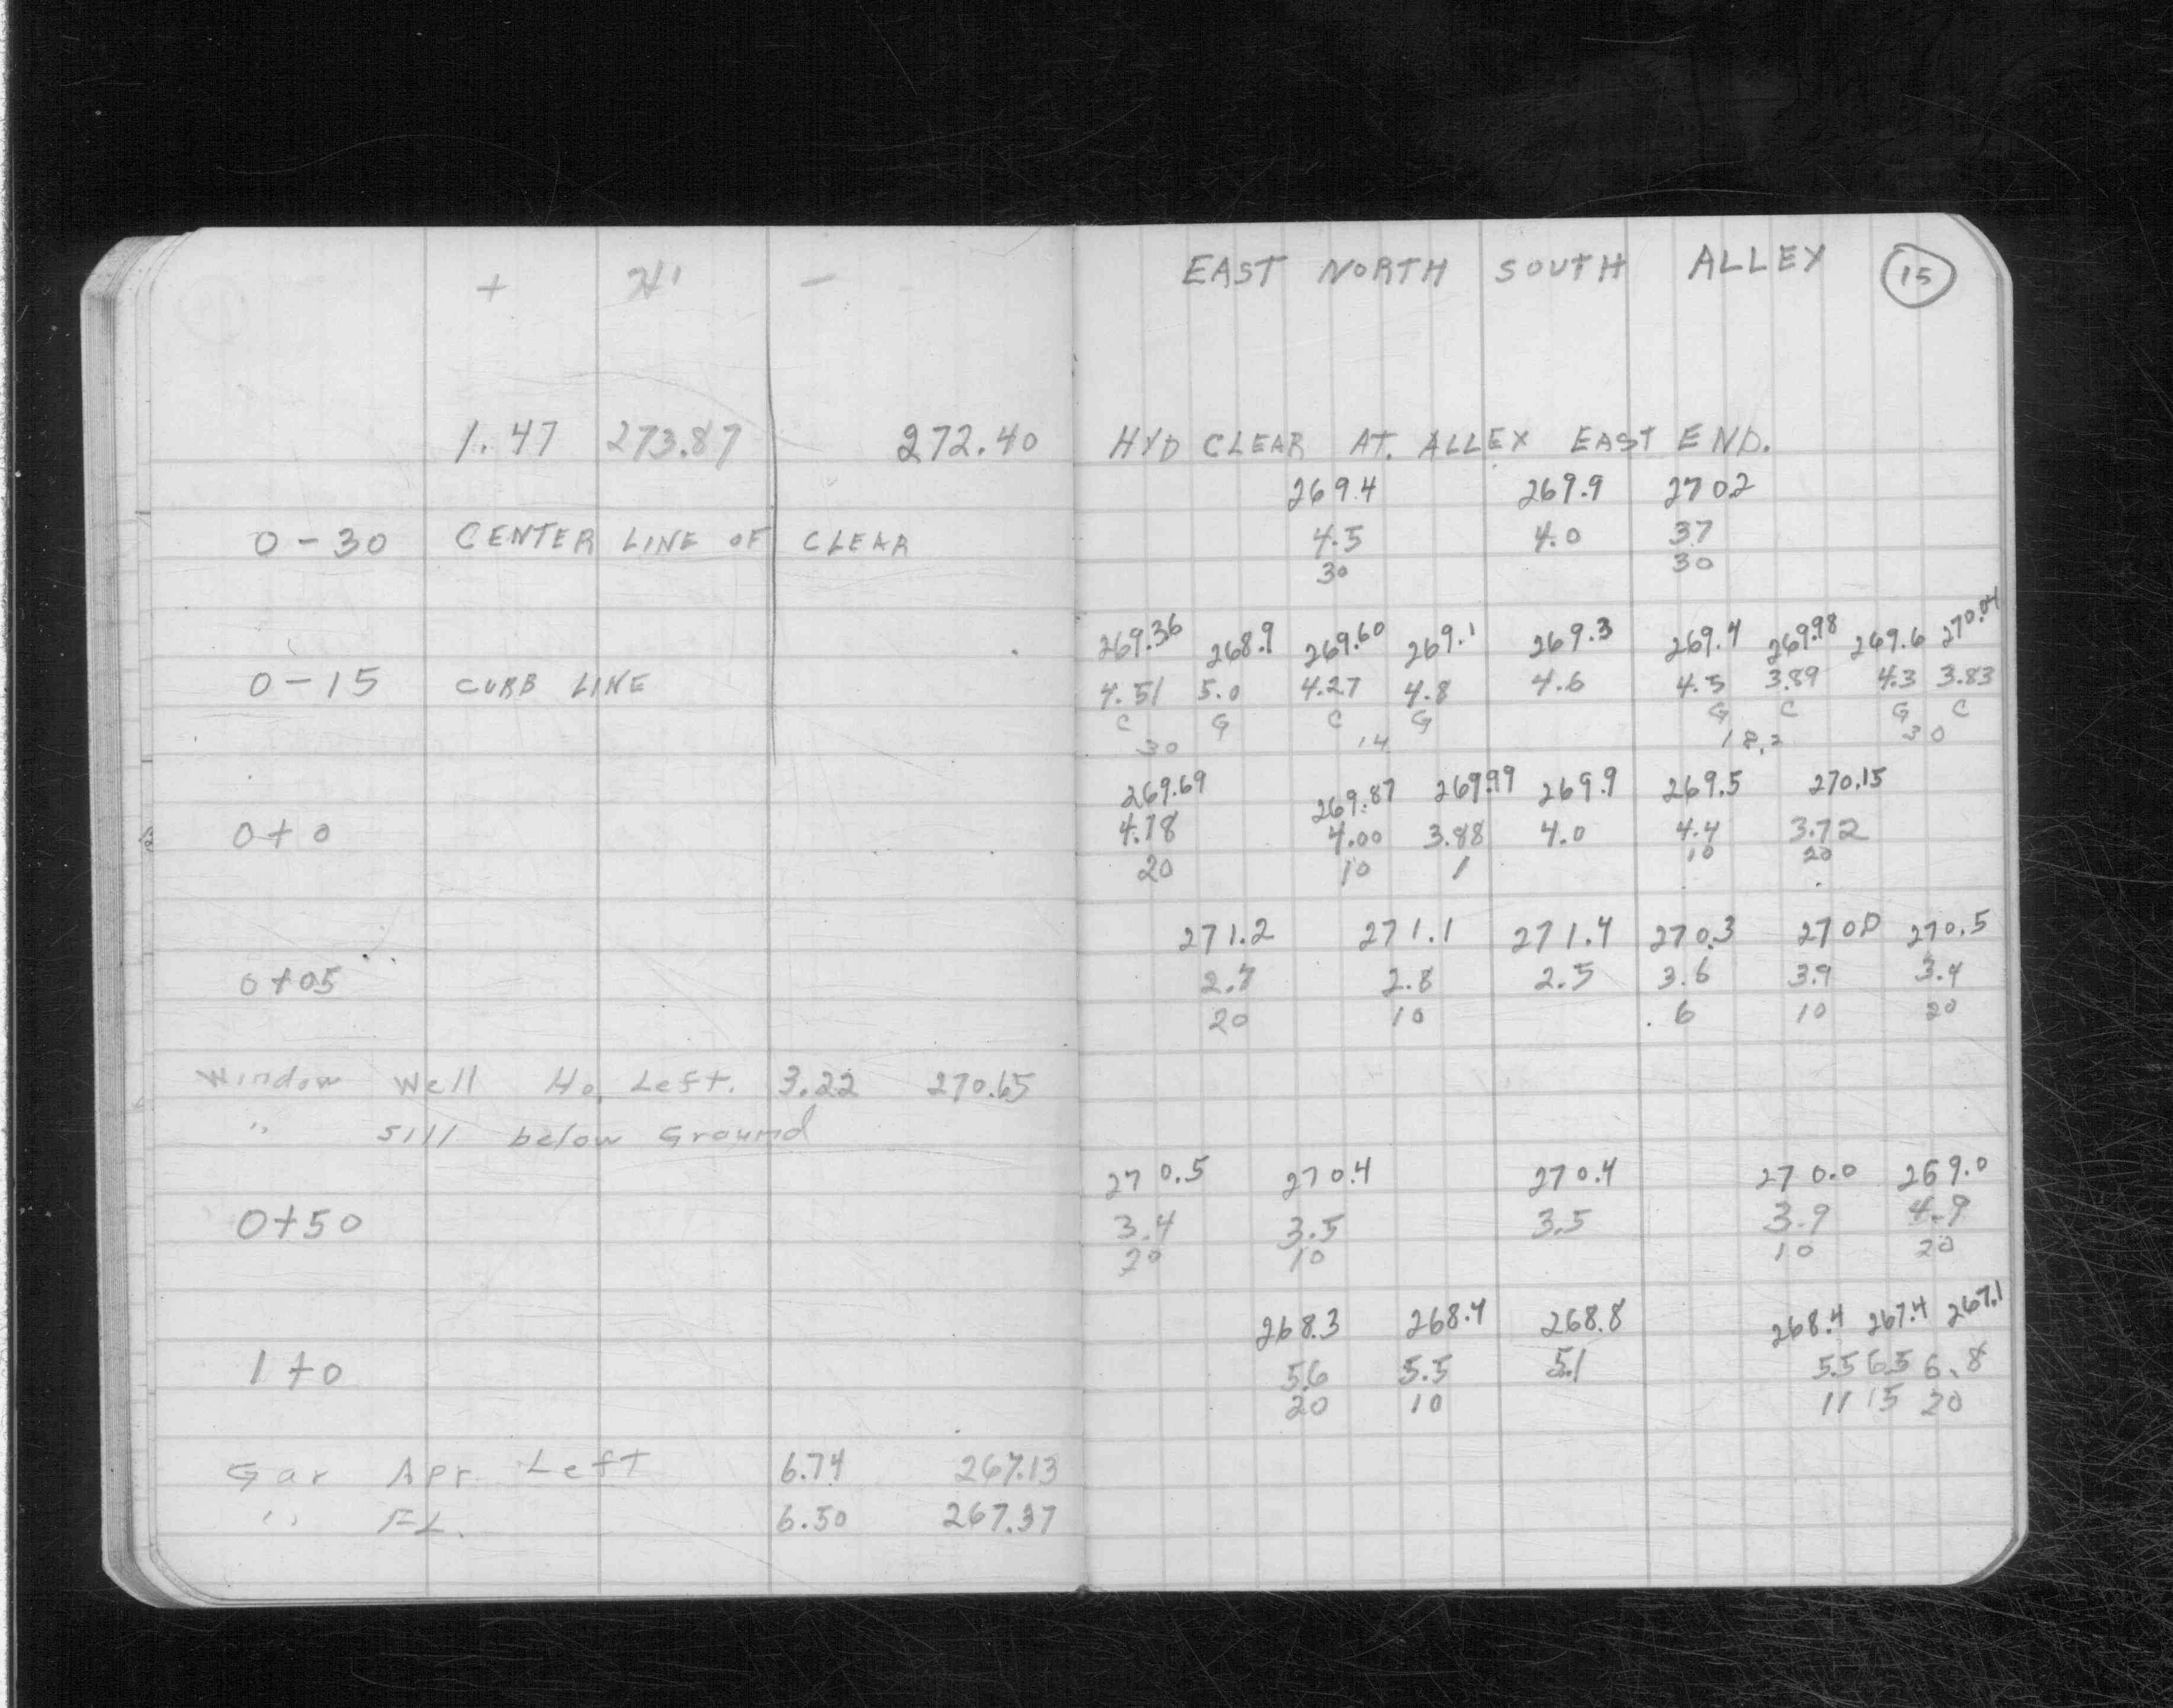 + HI - EAST NORTH SOUTH ALLEY 15
1.47 273.87 272.40 HYD CLEAR AT. ALLEY EAST END.
269.4 269.9 270.2
0-30 CENTER LINE OF CLEAR 4.5 4.0 3.7
30 30
269.36 268.9 269.60 269.1 269.3 269.4 269.98 269.6 270.04
0-15 CURB LINE 4.51 5.0 4.27 4.8 4.6 4.5 3.89 4.3 3.83
C G C G G C G C
30 14 18.2 30
269.69 269.87 269.99 269.9 269.5 270.15
0+0 4.18 4.00 3.88 4.0 4.4 3.72
20 10 1 10 20
271.2 271.1 271.4 270.3 270.0 270.5
0+05 2.7 2.8 2.5 3.6 3.9 3.4
20 10 6 10 20
Window Well Ho. Left. 3.22 270.65
" Sill below Ground
270.5 270.4 270.4 270.0 269.0
0+50 3.4 3.5 3.5 3.9 4.9
20 10 10 20
268.3 268.4 268.8 268.4 267.4 267.1
1+0 5.6 5.5 5.1 5.5 6.5 6.8
20 10 11 15 20
Gar Apr. Left 6.74 267.13
" FL. 6.50 267.37